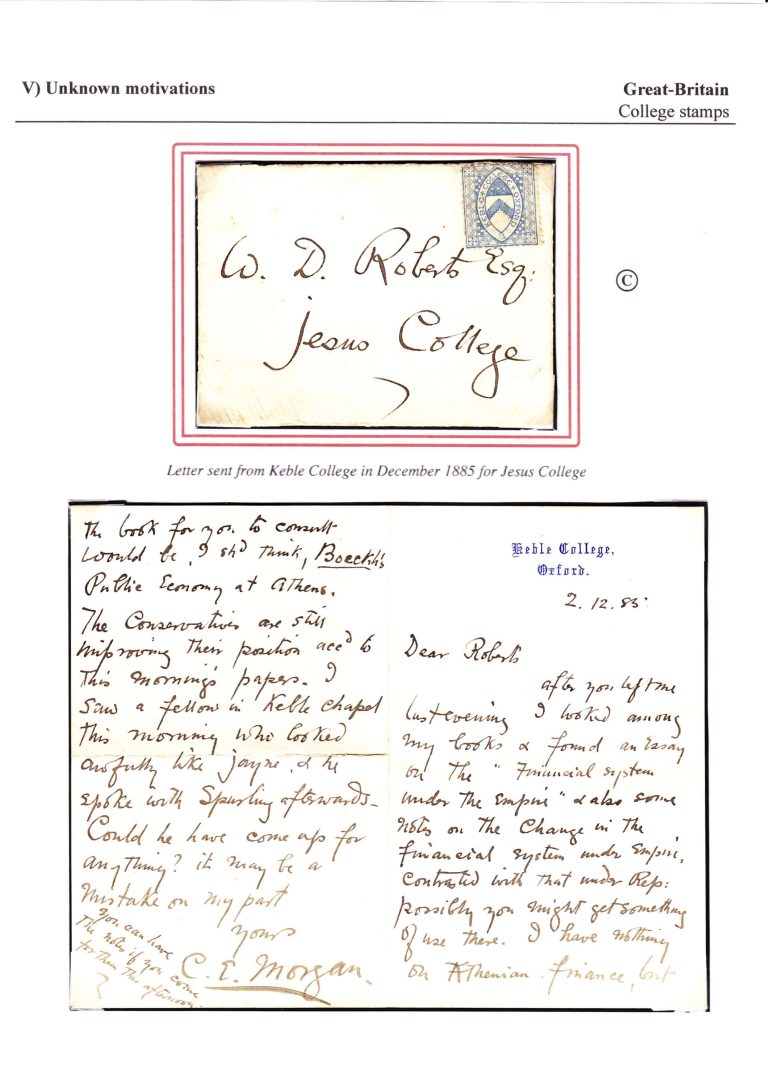 V) Unknown motivations
Great-Britain
College stamps
KEBLE COLLEGE OXFORD
W. D. Roberts Esq:
Jesus College
©
Letter sent from Keble College in December 1885 for Jesus College
Keble College,
Oxford.
2.12.85.
Dear Roberts
after you left me
last evening I looked among
my books & found an Essay
on the "Financial system
under the Empire" & also some
notes on the Change in the
financial system under Empire,
contrasted with that under Rep:
possibly you might get something
of use there. I have nothing
on Athenian finance, but
the book for you to consult
would be, I shd think, Boeckh's
Public Economy at Athens.
The Conservatives are still
improving their position accd to
this morning's papers. I
saw a fellow in Keble chapel
this morning who looked
awfully like Jayne, & he
spoke with Spurling afterwards—
Could he have come up for
anything? it may be a
mistake on my part
yours
C. E. Morgan.
You can have
the notes if you come
for them this afternoon.